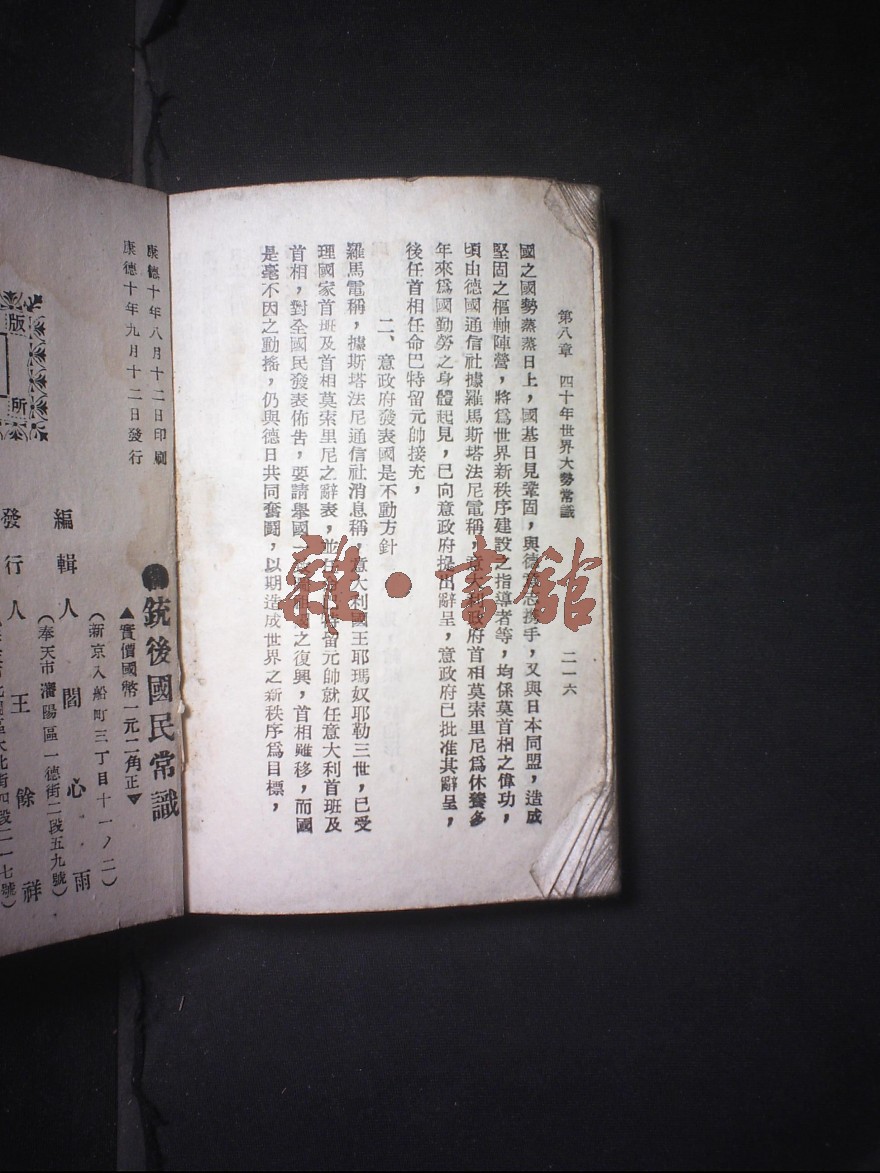 第八章　四十年世界大勢常識　二一六
國之國勢蒸蒸日上，國基日見鞏固，與德意志携手，又與日本同盟，造成
堅固之樞軸陣營，將爲世界新秩序建設之指導者等，均係莫首相之偉功，
頃由德國通信社據羅馬斯塔法尼電稱，意大利政府首相莫索里尼爲休養多
年來爲國勤勞之身體起見，已向意政府提出辭呈，意政府已批准其辭呈，
後任首相任命巴特留元帥接充，
二、意政府發表國是不動方針
羅馬電稱，據斯塔法尼通信社消息稱，意大利國王耶瑪奴耶勒三世，已受
理國家首班及首相莫索里尼之辭表，並任命巴特留元帥就任意大利首班及
首相，對全國民發表佈告，要請舉國一之復興，首相雖移，而國
是毫不因之動搖，仍與德日共同奮鬪，以期造成世界之新秩序爲目標，
雜·書館
●銃後國民常識
▲實價國幣一元二角正▼
康德十年八月十二日印刷
康德十年九月十二日發行
（新京入船町三丁目十一ノ二）
編輯人　閻心雨
（奉天市瀋陽區一德街二段五九號）
發行人　王餘祥
北街四段二一七號）
版
所